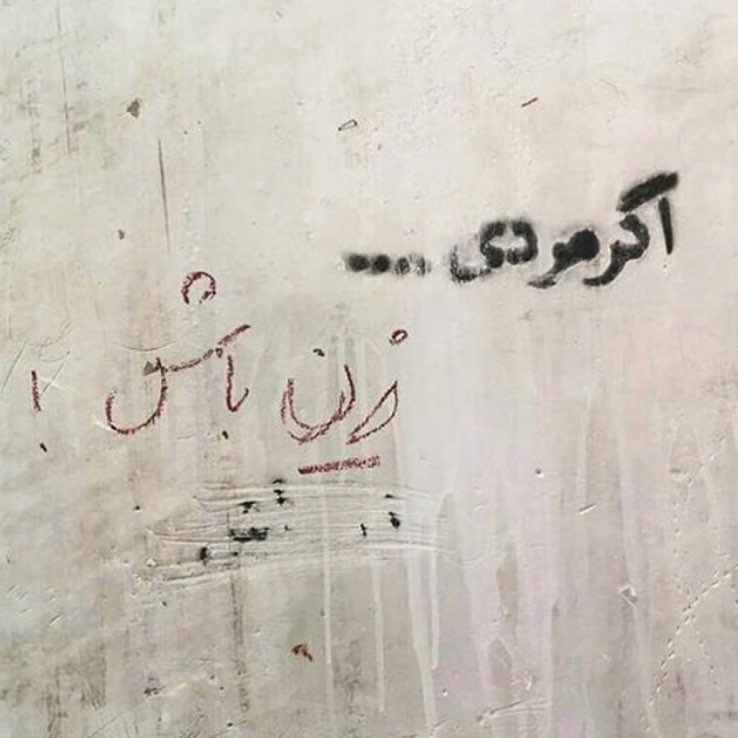 اگر مردی ....
زن باش !